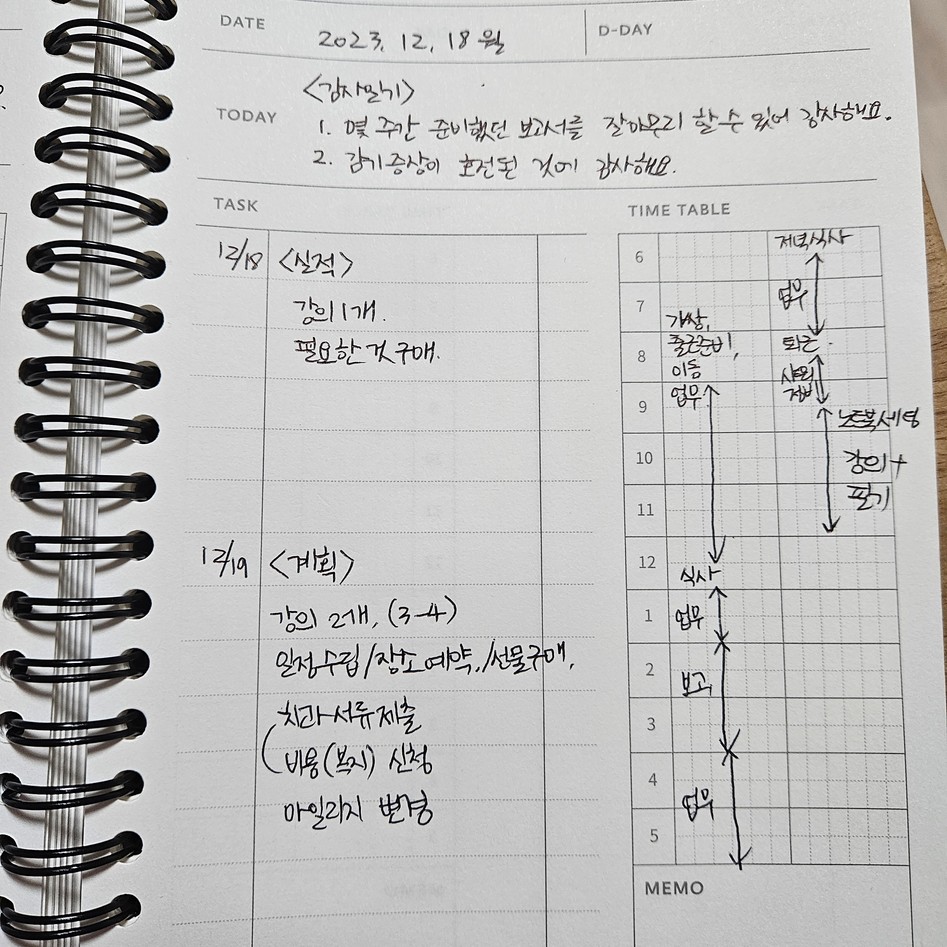 DATE 2023. 12. 18 월
D-DAY
<감사일기>
TODAY
1. 몇 주간 준비했던 보고서를 잘 마무리 할 수 있어 감사해요.
2. 감기증상이 호전된 것에 감사해요.
TASK
12/18 <실적>
강의 1개.
필요한 것 구매.
12/19 <계획>
강의 2개, (3-4)
일정수립/장소예약./선물구매.
치과서류제출
(비용(복지) 신청
마일리지 변경
TIME TABLE
저녁식사
6
7 업무
기상,
8 출근준비, 퇴근.
이동 샤워
9 업무 정비
노트북세팅
10 강의+
11 필기
12
식사
1 업무
2 보고
3
4 업무
5
MEMO